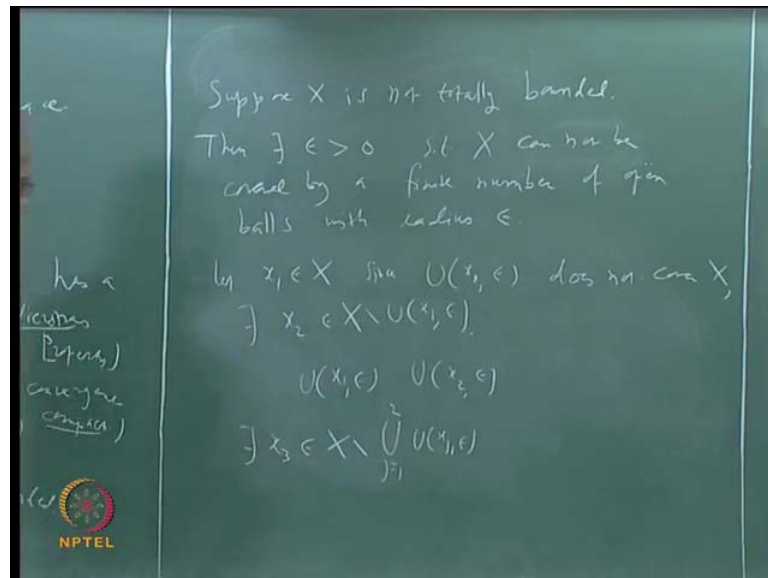 a c e.
has a
Property)
convergent
compact)
Suppose X is not totally bounded.
Then ∃ ε > 0 s.t. X can not be
covered by a finite number of open
balls with radius ε.
let x₁ ∈ X since U(x₁, ε) does not cover X,
∃ x₂ ∈ X \ U(x₁, ε).
U(x₁, ε) U(x₂, ε)
∃ x₃ ∈ X \ ⋃_{j=1}^{2} U(x_j, ε)
NPTEL